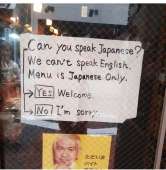 Can you speak Japanese?
We can't speak English.
Menu is Japanese Only.
YES! Welcome.
NO! I'm sorry.